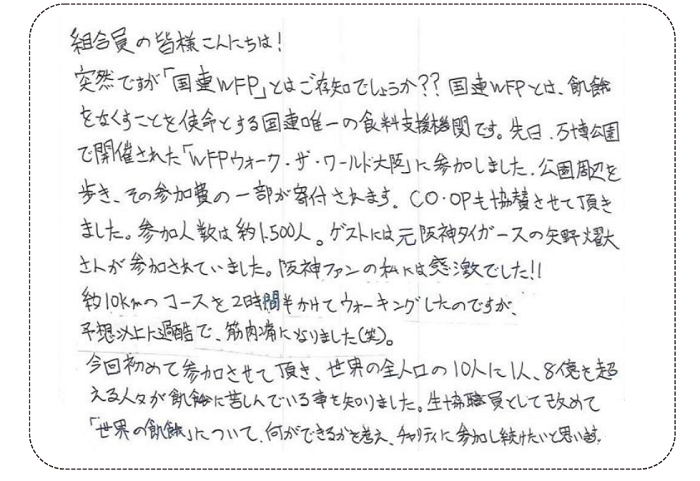 組合員の皆様こんにちは!
突然ですが「国連WFP」とはご存知でしょうか??国連WFPとは、飢餓
をなくすことを使命とする国連唯一の食料支援機関です。先日、万博公園
で開催された「WFPウォーク・ザ・ワールド大阪」に参加しました。公園周辺を
歩き、その参加費の一部が寄付されます。CO・OPも協賛させて頂き
ました。参加人数は約1,500人。ゲストには元阪神タイガースの矢野燿大
さんが参加されていました。阪神ファンの私には感激でした!!
約10kmのコースを2時間半かけてウォーキングしたのですが、
予想以上に過酷で、筋肉痛になりました(笑)。
今回初めて参加させて頂き、世界の全人口の10人に1人、8億を超
える人々が飢餓に苦しんでいる事を知りました。生協職員として改めて
「世界の飢餓」について、何ができるかを考え、チャリティに参加し続けたいと思います。